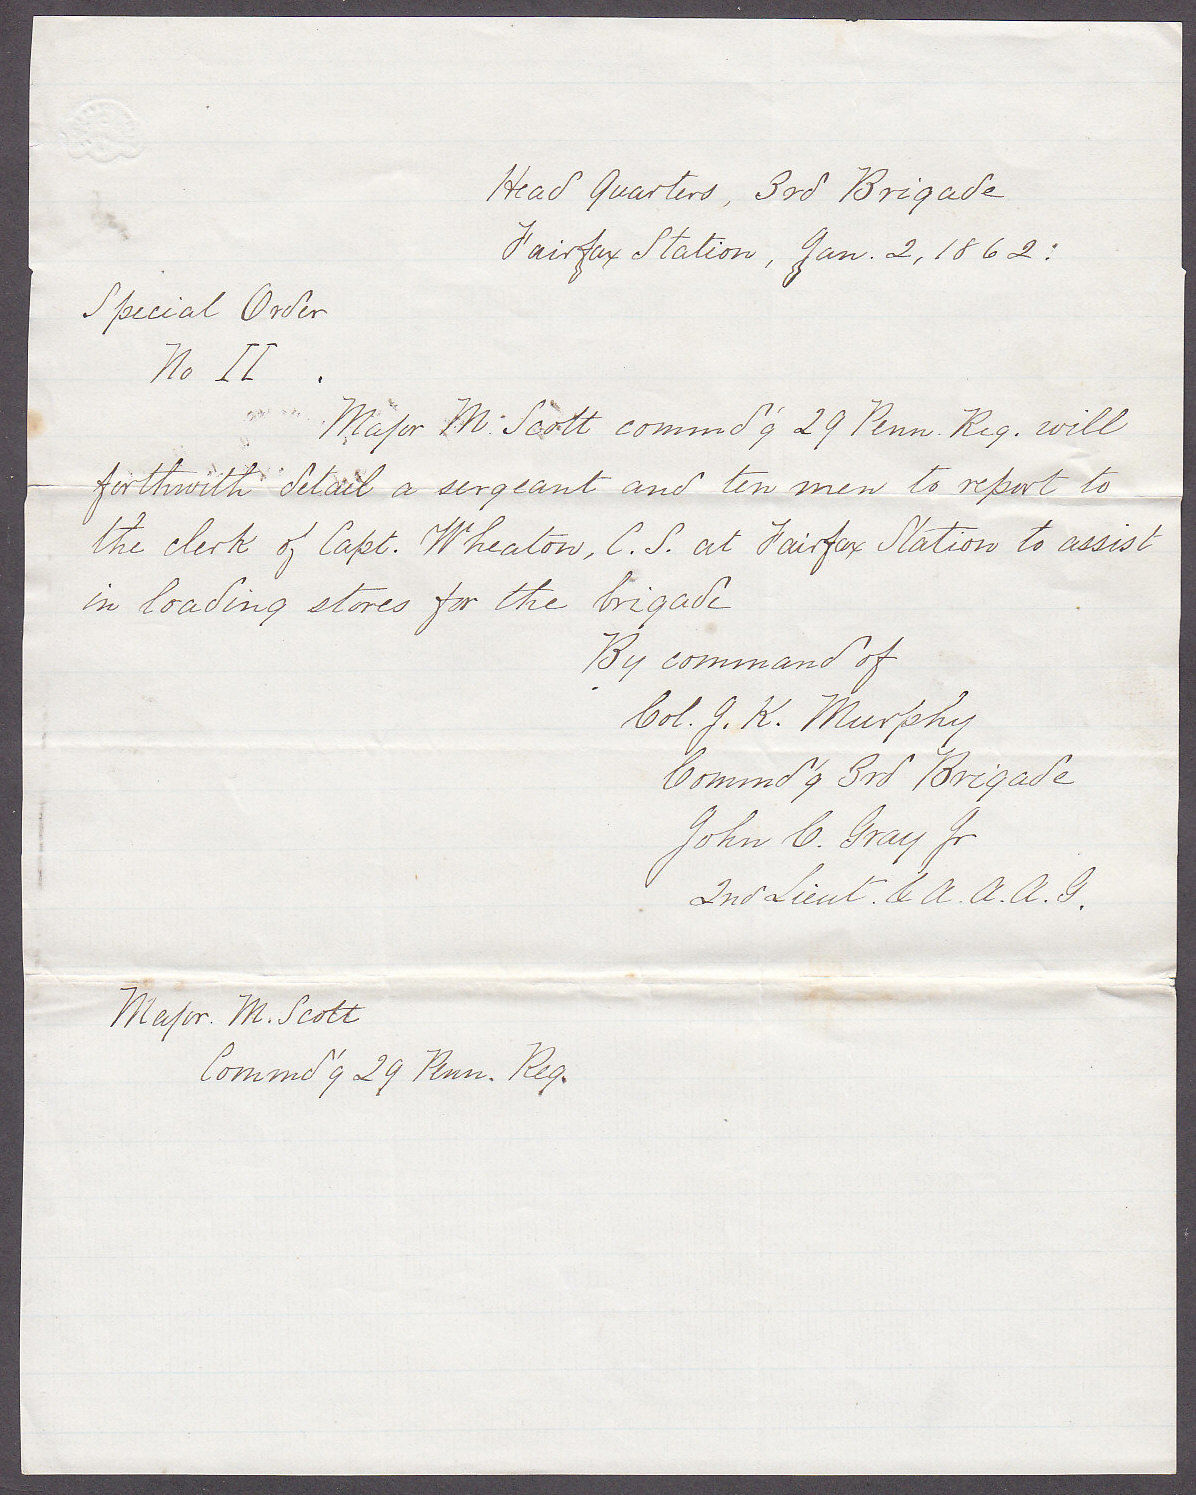 Head Quarters, 3rd Brigade
Fairfax Station, Jan. 2, 1862:
Special Order
No II .
Major M. Scott commd'g 29 Penn. Reg. will
forthwith detail a sergeant and ten men to report to
the clerk of Capt. Wheaton, C. S. at Fairfax Station to assist
in loading stores for the brigade
By command of
Col. J. K. Murphy
Commd'g 3rd Brigade
John C. Gray Jr
2nd Lieut. & A. A. A. G.
Major. M. Scott
Commd'g 29 Penn. Reg.